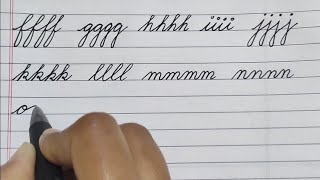 ffff gggg hhhh iiii jjjj
kkkk llll mmmm nnnn
o